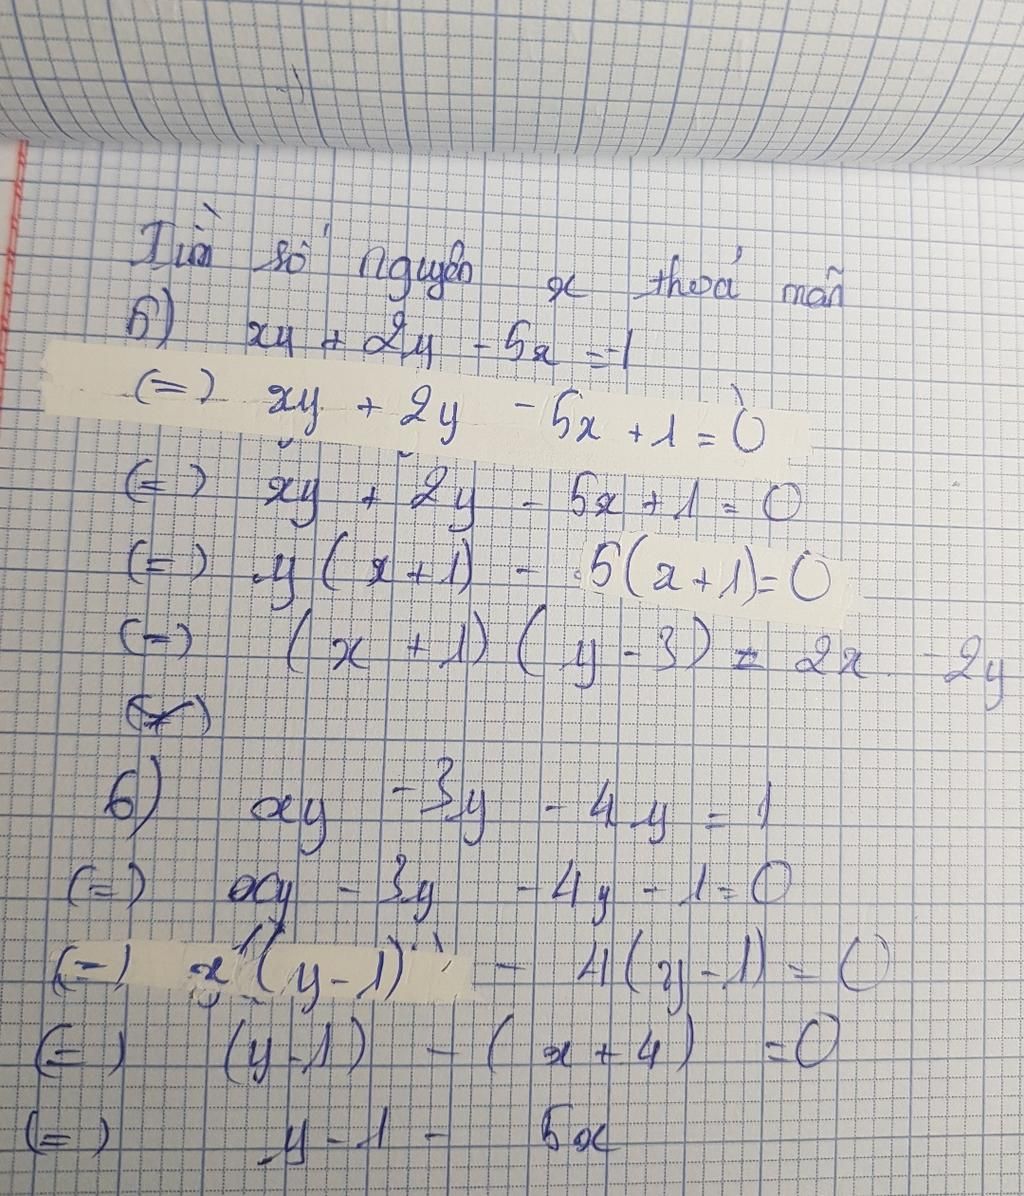 Tìm số nguyên x thoả mãn
5) xy + 2y - 5x = -1
(=) xy + 2y - 5x + 1 = 0
(=) xy + 2y - 5x + 1 = 0
(=) y (x + 1) - 5(x + 1) = 0
(=) (x + 1) (y - 3) = 2x - 2y
6) xy - 3y - 4y = 1
(=) xy - 3y - 4y - 1 = 0
(=) x (y - 1) - 4(y - 1) = 0
(=) (y - 1) - (x + 4) = 0
(=) y - 1 - 5x